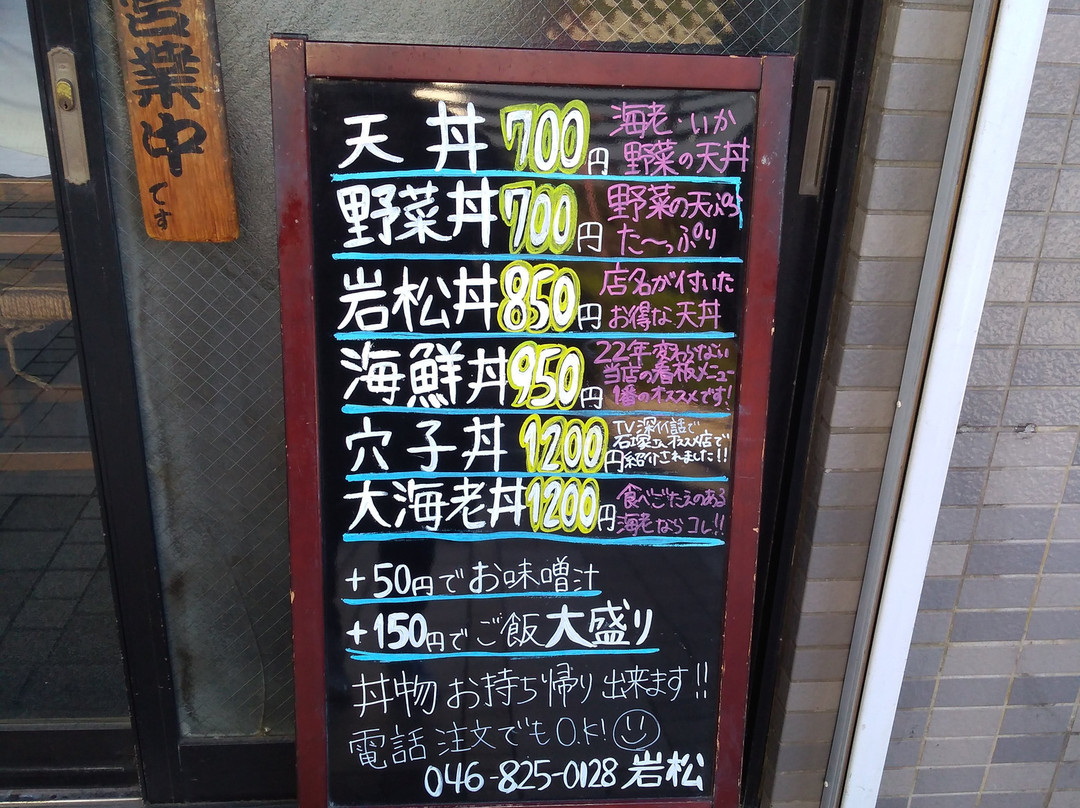 営業中です
天丼 700円 海老・いか
野菜の天丼
野菜丼 700円 野菜の天ぷら
た〜っぷり
岩松丼 850円 店名が付いた
お得な天丼
海鮮丼 950円 22年変わらない
当店の看板メニュー
1番のオススメです!
穴子丼 1200円 TV深イイ話で
石塚さんオススメ店で
紹介されました!!
大海老丼 1200円 食べごたえのある
海老ならコレ!!
+50円でお味噌汁
+150円でご飯大盛り
丼物お持ち帰り出来ます!!
電話注文でもO.K!
046-825-0128 岩松